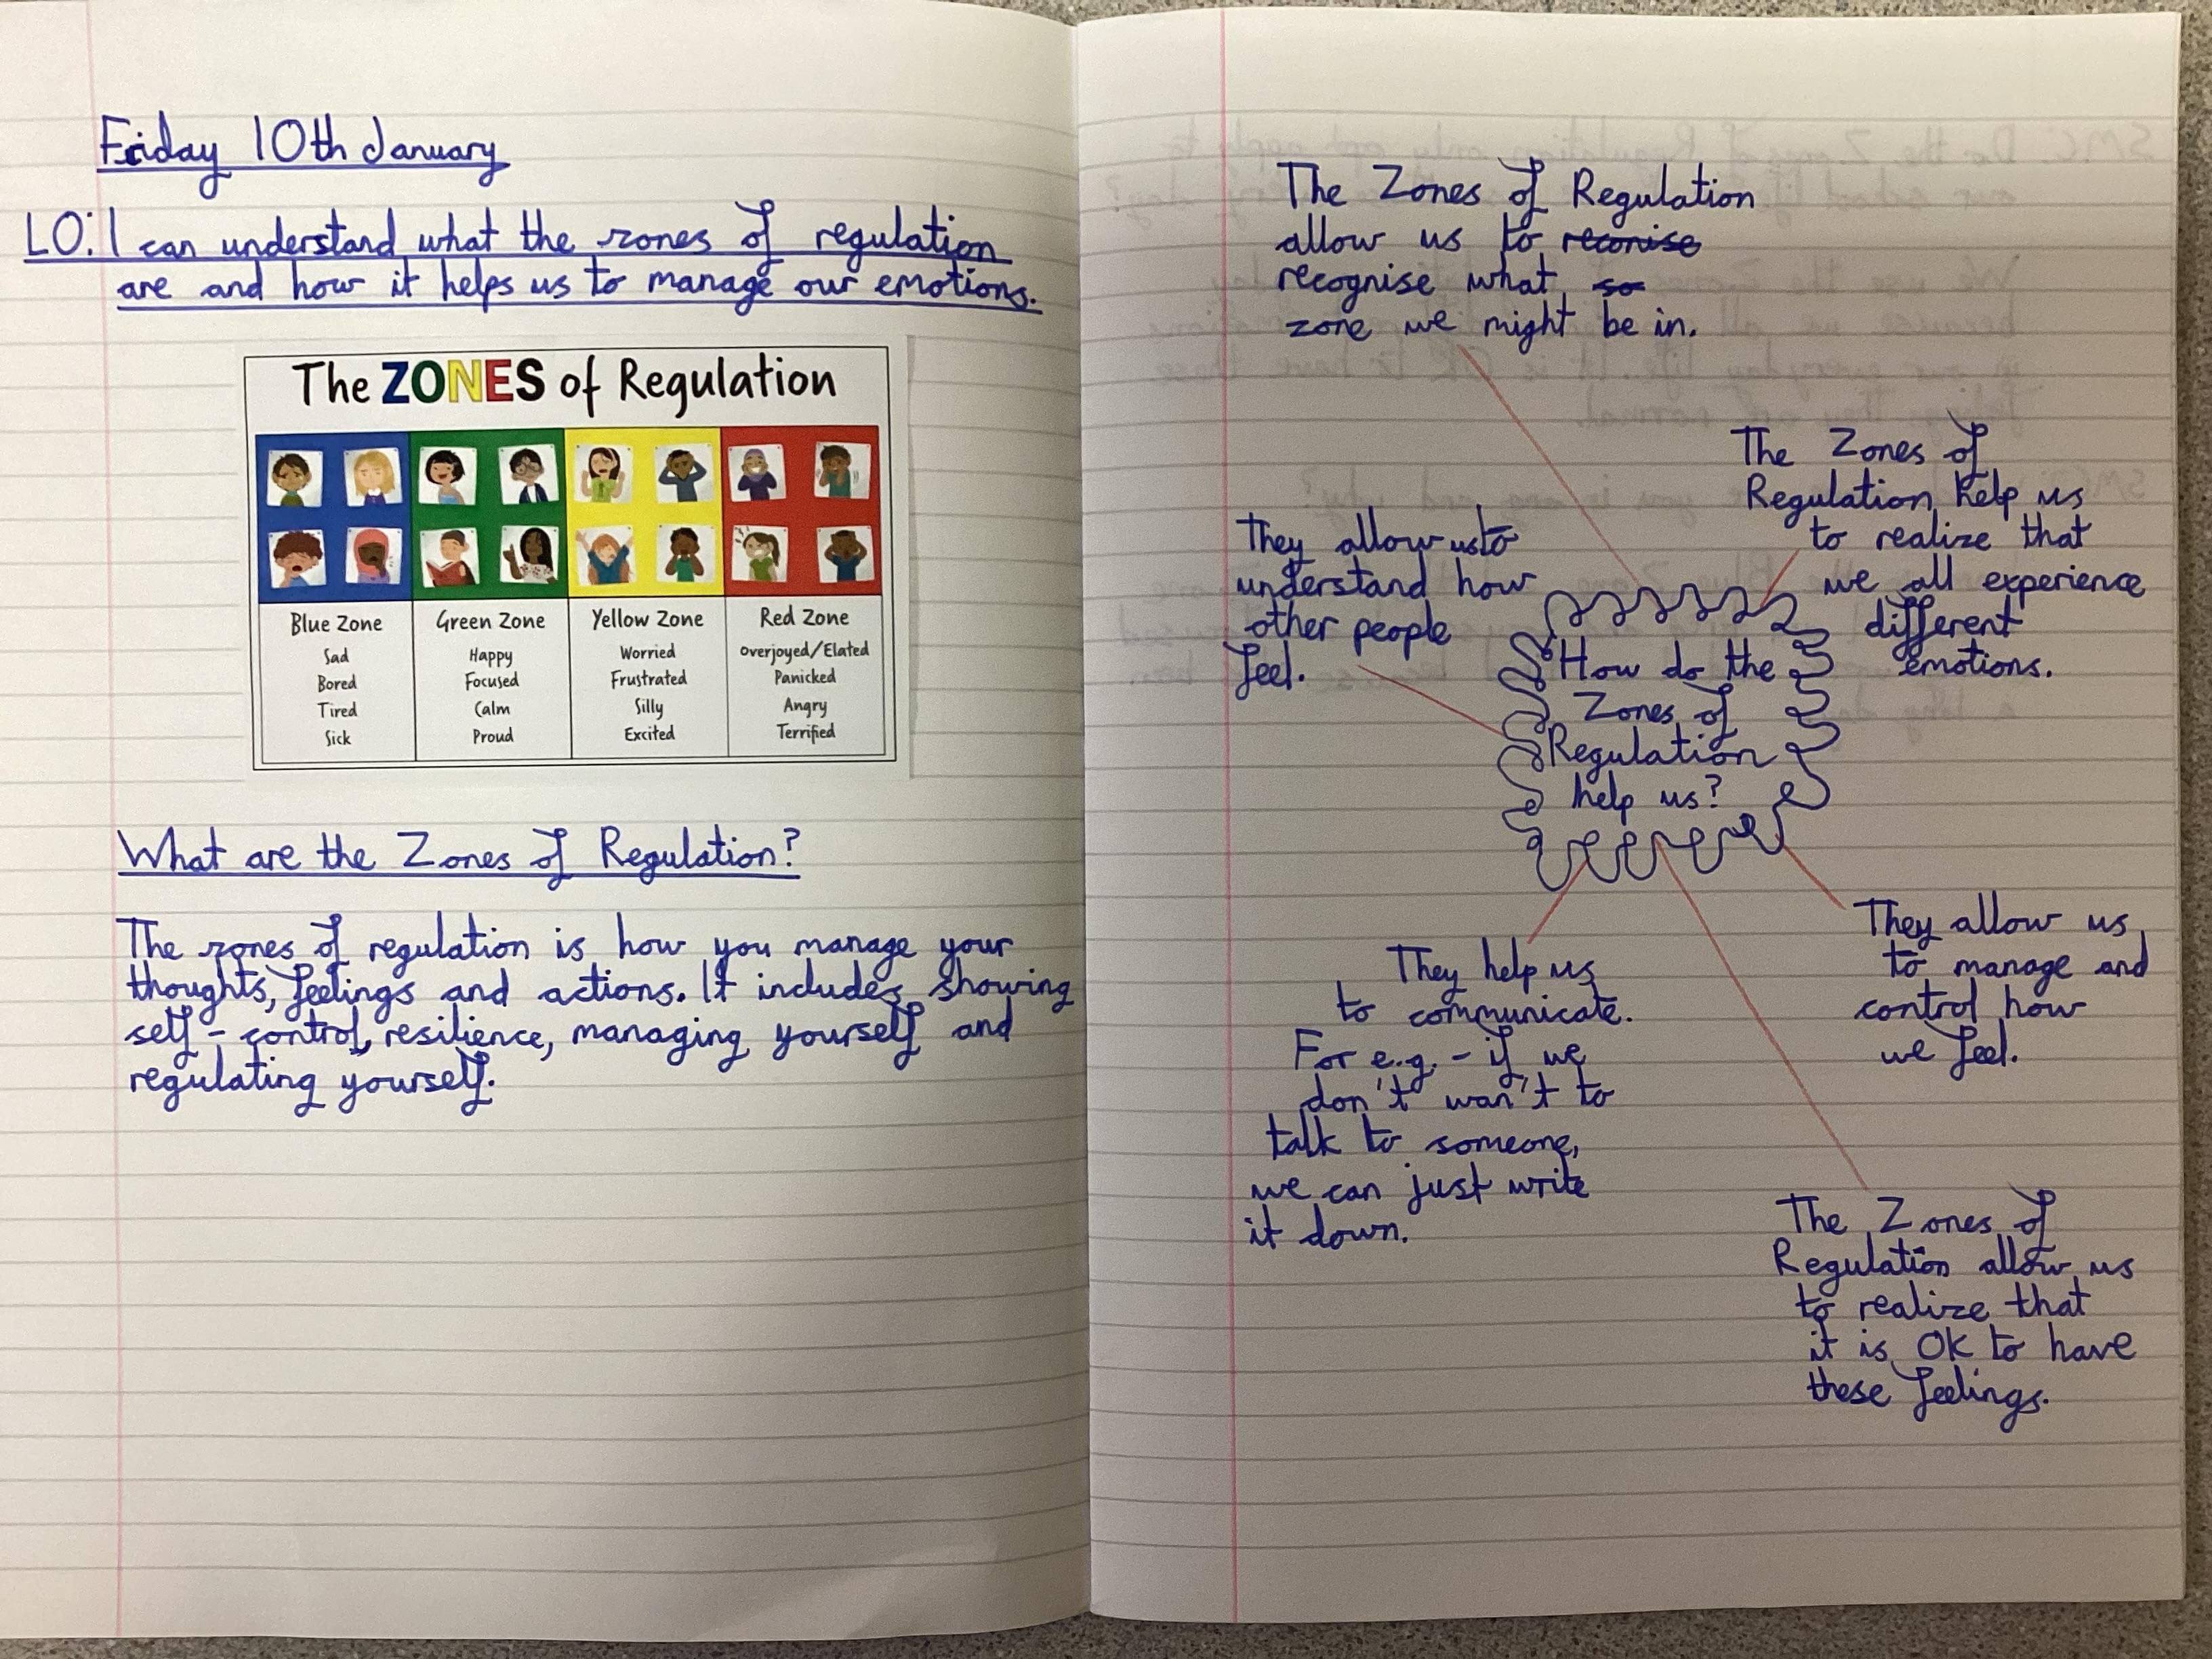 Friday 10th January
LO: I can understand what the zones of regulation
are and how it helps us to manage our emotions.
The ZONES of Regulation
Blue Zone
Sad
Bored
Tired
Sick
Green Zone
Happy
Focused
Calm
Proud
Yellow Zone
Worried
Frustrated
Silly
Excited
Red Zone
Overjoyed/Elated
Panicked
Angry
Terrified
What are the Zones of Regulation?
The zones of regulation is how you manage your
thoughts, feelings and actions. It includes showing
self-control, resilience, managing yourself and
regulating yourself.
The Zones of Regulation
allow us to reconise
recognise what so
zone we might be in.
The Zones of
Regulation help us
to realize that
we all experience
different
emotions.
They allow us to
understand how
other people
feel.
How do the
Zones of
Regulation
help us?
They help us
to communicate.
For e.g. - if we
don't wan't to
talk to someone,
we can just write
it down.
They allow us
to manage and
control how
we feel.
The Zones of
Regulation allow us
to realize that
it is OK to have
these feelings.